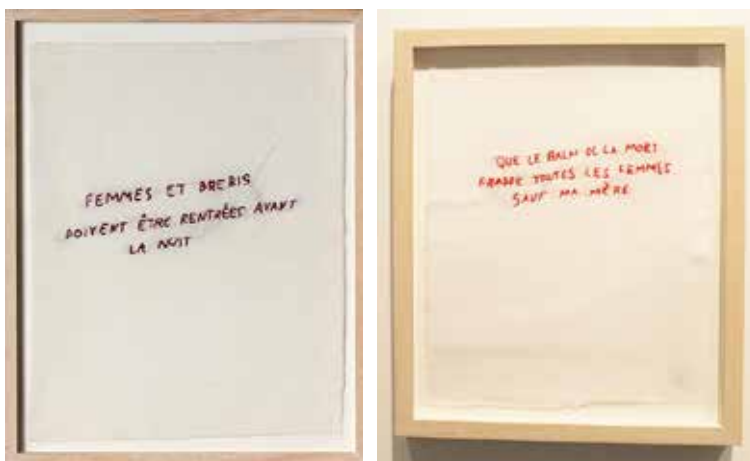 FEMMES ET BREBIS
DOIVENT ÊTRE RENTRÉES AVANT
LA NUIT
QUE LE BALAI DE LA MORT
FRAPPE TOUTES LES FEMMES
SAUF MA MÈRE